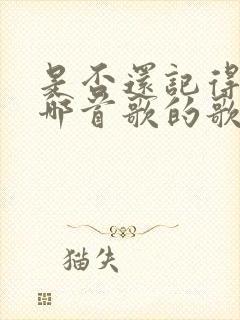 是否還記得
那首歌的歌
猫失